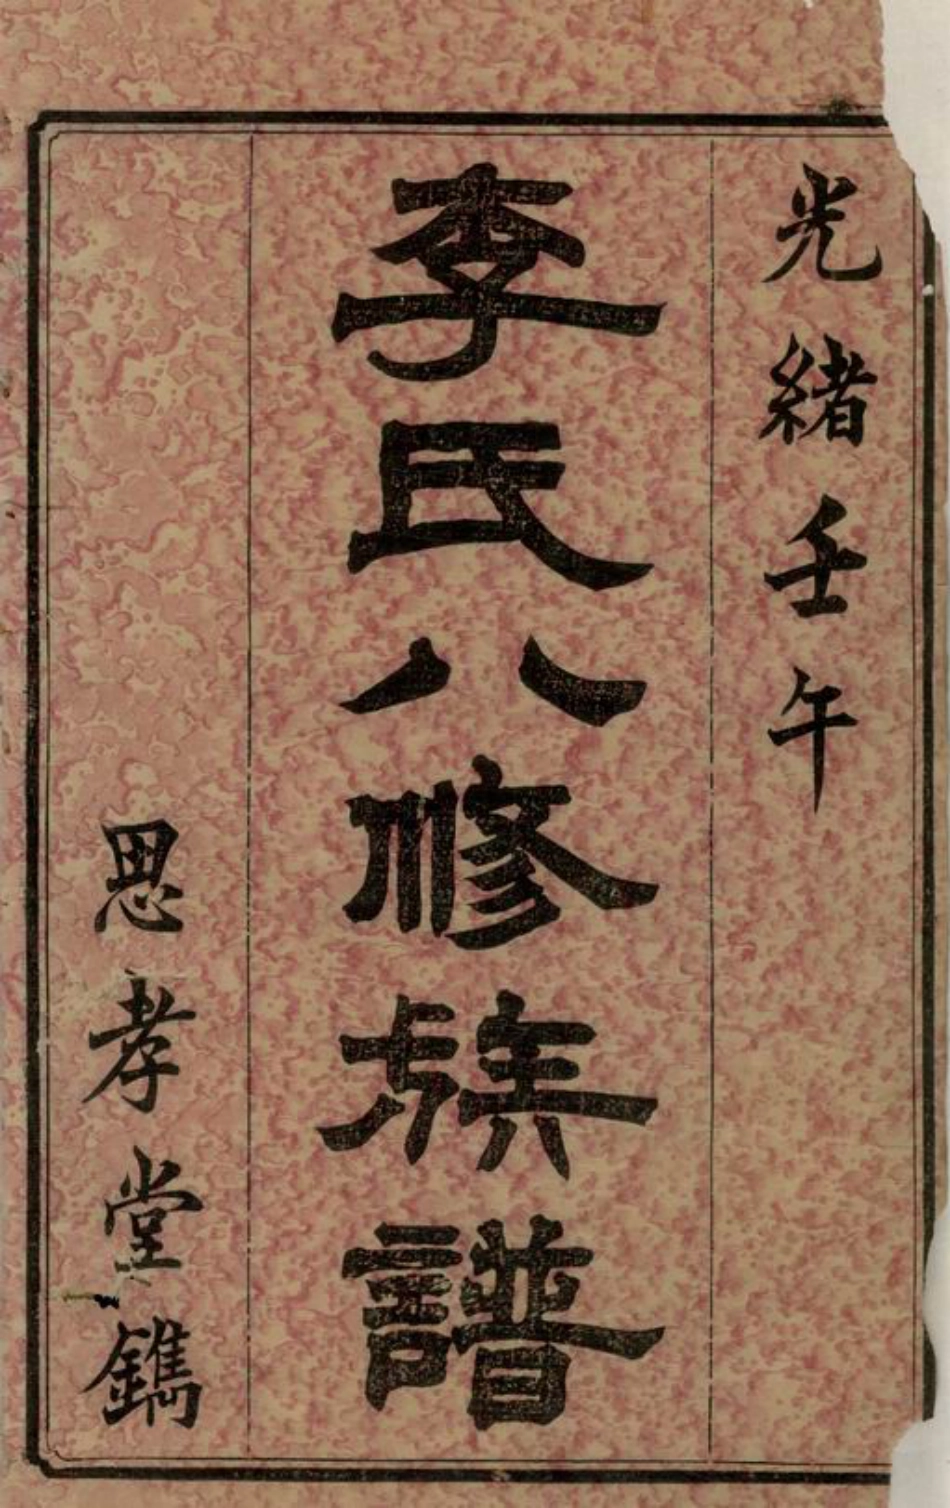 光緒壬午
李氏八修族譜
思孝堂鐫